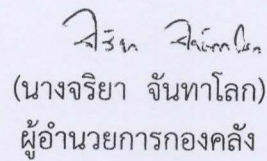 (นางจริยา จันทาโลก)
ผู้อำนวยการกองคลัง